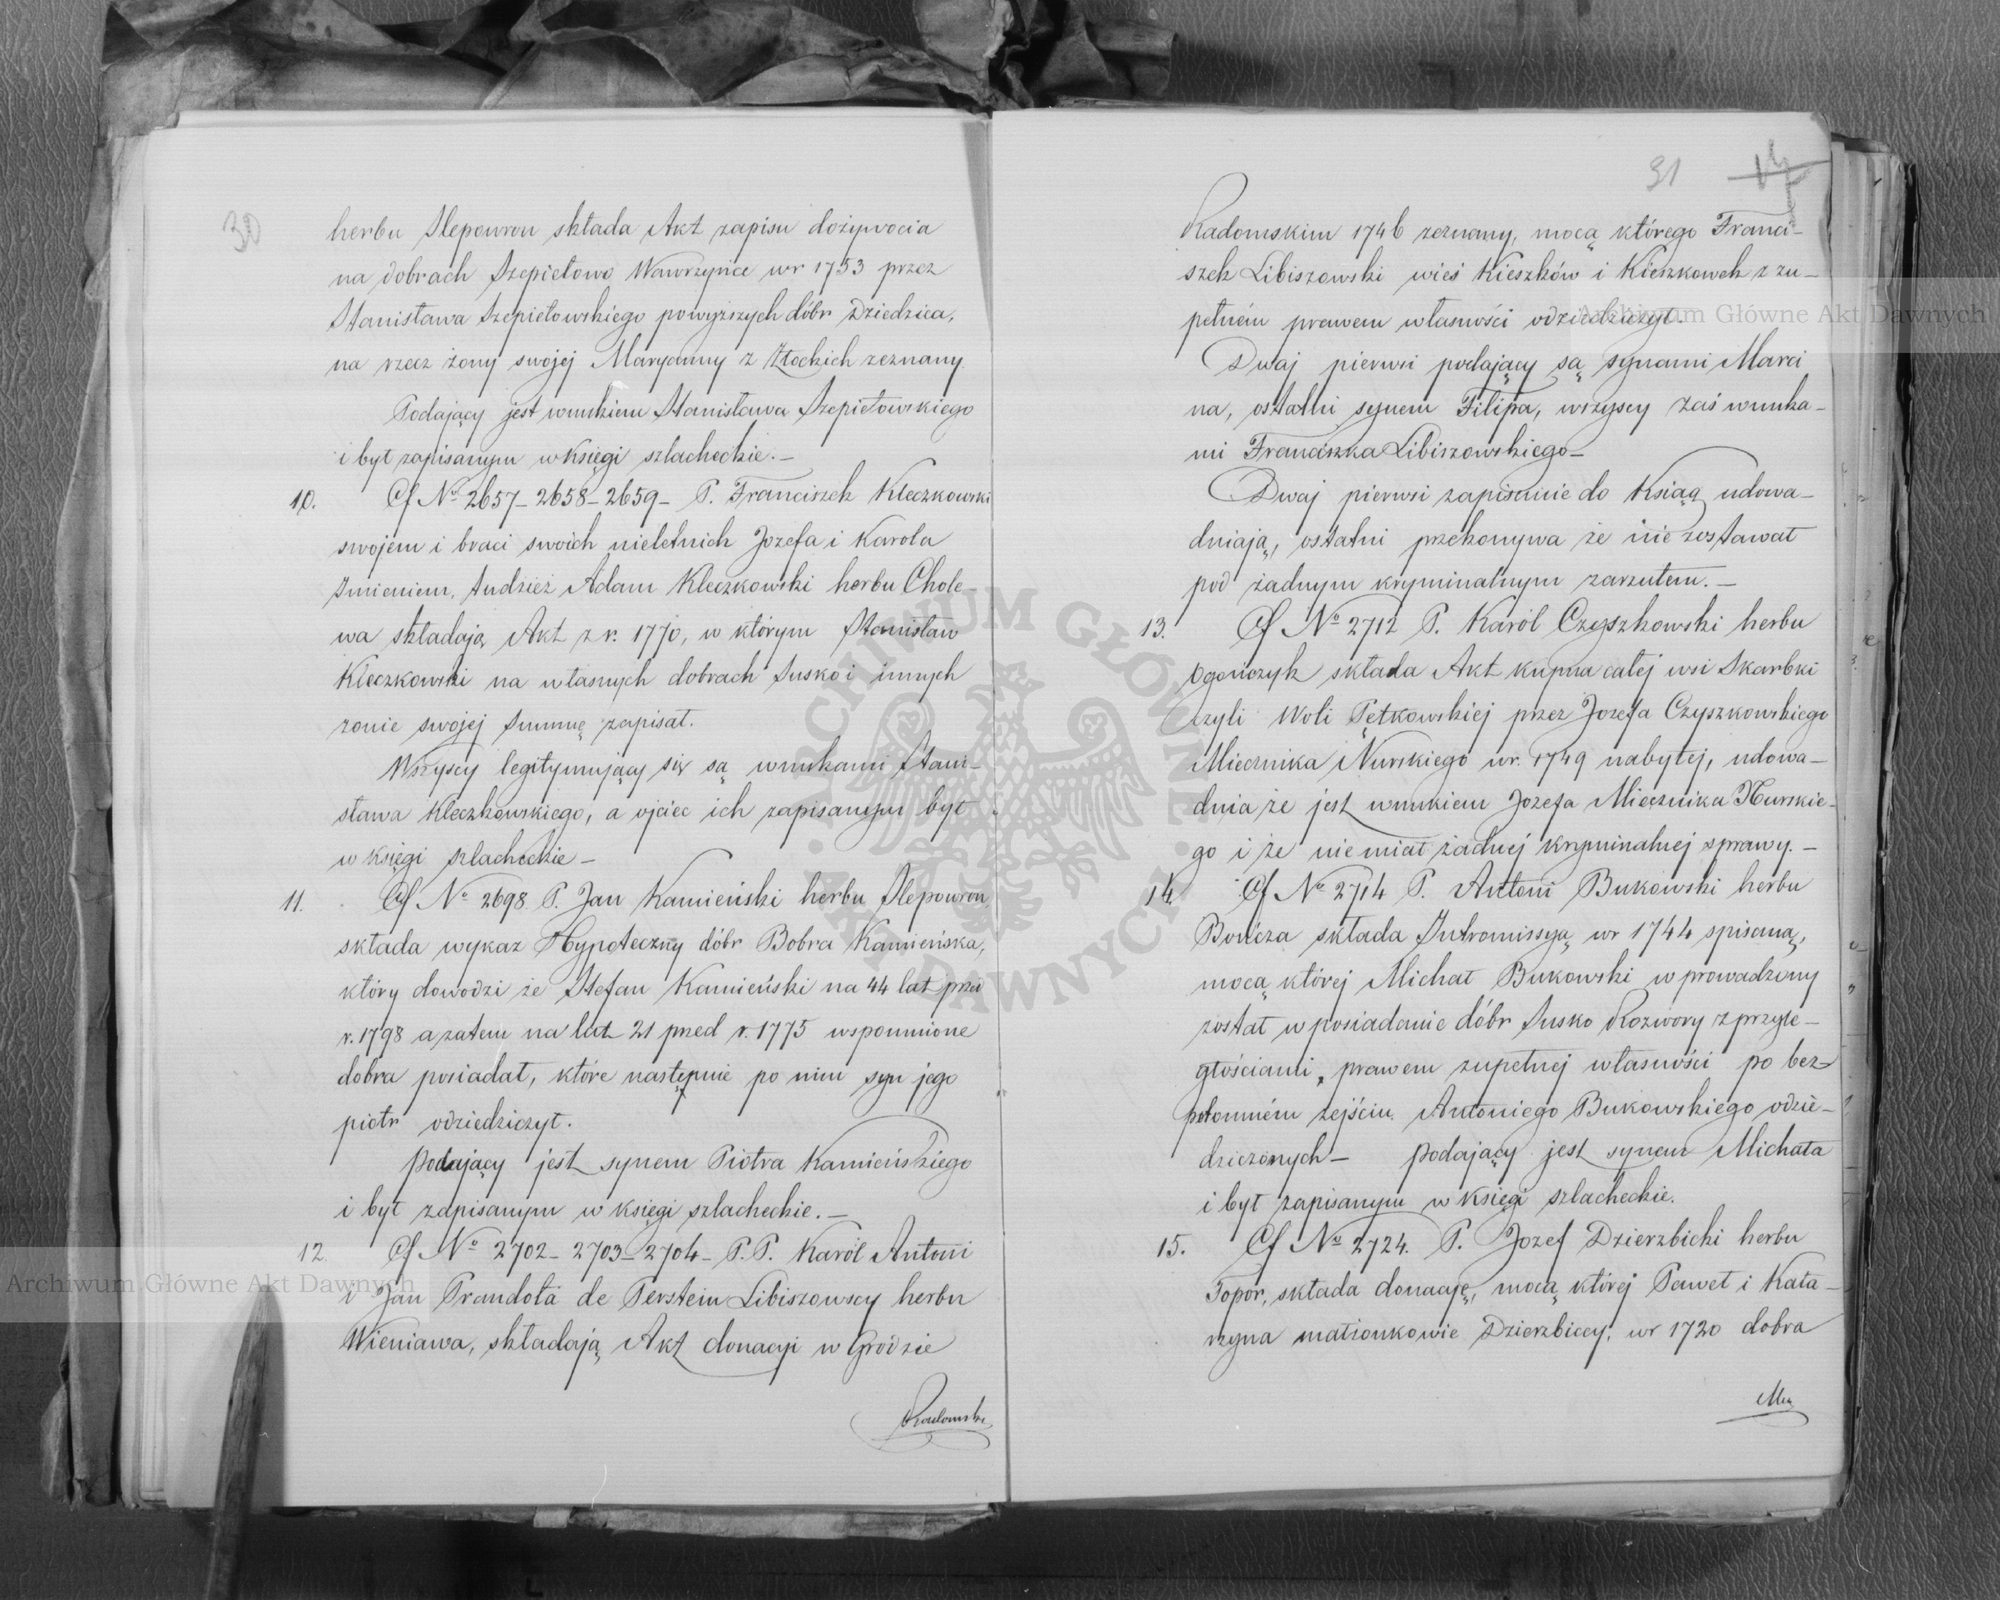 30
herbu Slepowron składa Akt zapisu dożywocia
na dobrach Szepietowo Wawrzyńce w r 1753 przez
Stanisława Szepietowskiego powyższych dóbr Dziedzica,
na rzecz żony swojej Maryanny z Złockich zeznany
Podający jest wnukiem Stanisława Szepietowskiego
i był zapisanym w księgi szlacheckie. –
10. Cf No 2657 – 2658 – 2659 – P. Franciszek Kleczkowski
swojem i braci swoich nieletnich Jozefa i Karola
Imieniem, tudzież Adam Kleczkowski herbu Chole-
wa składają Akt z r. 1770, w którym Stanisław
Kleczkowski na własnych dobrach Susko i innych
żonie swojej Summę zapisał.
Wszyscy legitymujący się są wnukami Stani-
sława Kleczkowskiego, a ojciec ich zapisanym był
w księgi szlacheckie –
11. Cf No 2698 P. Jan Kamieński herbu Slepowron,
składa wykaz Hypoteczny dóbr Bobra Kamieńska,
który dowodzi że Stefan Kamieński na 44 lat przed
r. 1798 a zatem na lat 21 przed r. 1775 wspomnione
dobra posiadał, które następnie po nim syn jego
piotr odziedziczył.
Podający jest synem Piotra Kamieńskiego
i był zapisanym w księgi szlacheckie. –
12. Cf No 2702 – 2703 – 2704 – P. P. Karól Antoni
i Jan Prandota de Perstein Libiszowscy herbu
Wieniawa, składają Akt donacyi w Grodzie
Radomski
31 17
Radomskim 1746 zeznany, mocą którego Franci-
szek Libiszowski wieś Kieszków i Kieszkowek z zu-
pełném prawem własności odziedziczył.
Dwaj pierwsi podający są synami Marci
na, ostatni synem Filipa, wszyscy zaś wnuka-
mi Franciszka Libiszowskiego –
Dwaj pierwsi zapisanie do Ksiąg udowa-
dniają, ostatni przekonywa że nie zostawał
pod żadnym kryminalnym zarzutem. –
13. Cf No 2712 P. Karól Czyszkowski herbu
Ogończyk składa Akt kupna całej wsi Skarbki
czyli Woli Pętkowskiej przez Jozefa Czyszkowskiego
Miecznika Nurskiego w r. 1749 nabytej, udowa-
dnia że jest wnukiem Jozefa Miecznika Nurskie-
go i że nie miał żadnej kryminalnej sprawy. –
14. Cf No 2714 P. Antoni Bukowski herbu
Bończa składa Intromissyą w r 1744 spisaną,
mocą której Michał Bukowski wprowadzony
został w posiadanie dóbr Susko Rozwory z przyle-
głościami, prawem zupełnej własności po bez
potomném zejściu Antoniego Bukowskiego odzie-
dziczonych – Podający jest synem Michała
i był zapisanym w księgi szlacheckie.
15. Cf No 2724. P. Jozef Dzierzbicki herbu
Topór, składa donacyę, mocą której Paweł i Kata-
rzyna małżonkowie Dzierzbiccy, w r 1720 dobra
Archiwum Główne Akt Dawnych
Archiwum Główne Akt Dawnych
ARCHIWUM GŁÓWNE
AKT DAWNYCH